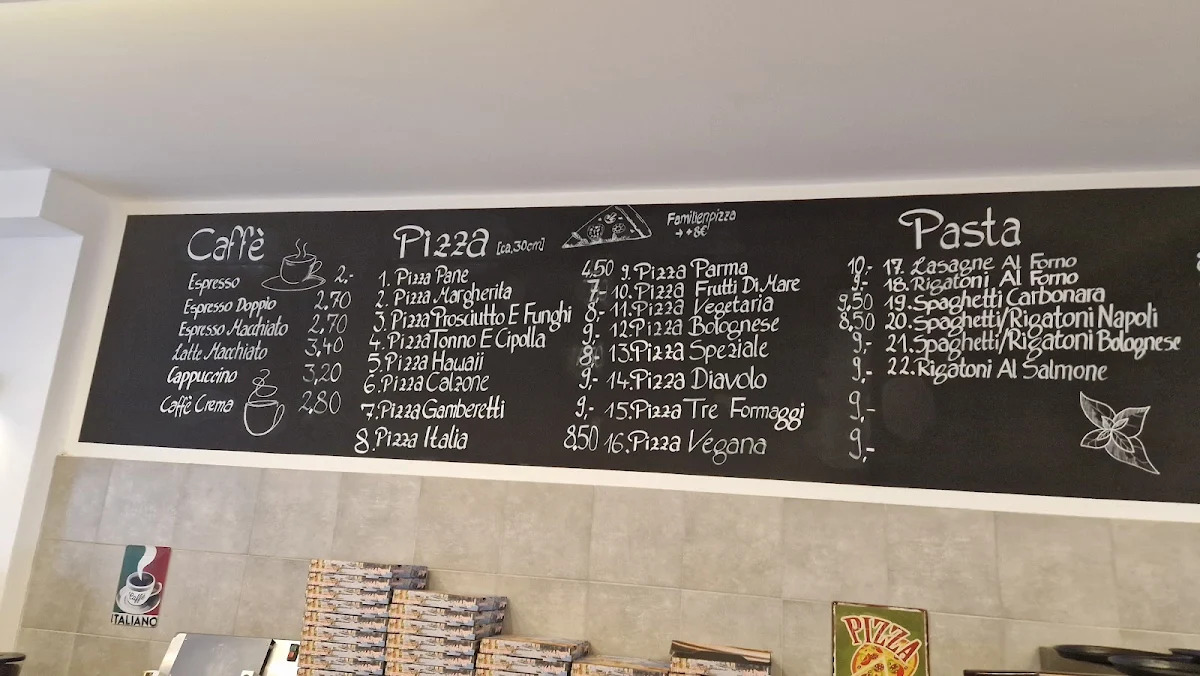 Caffè
Espresso 2.-
Espresso Doppio 2,70
Espresso Macchiato 2.70
Latte Macchiato 3,40
Cappuccino 3,20
Caffè Crema 2,80
Pizza [ca.30cm]
Familienpizza
→ +8€
1. Pizza Pane 4,50
2. Pizza Margherita 7,-
3. Pizza Prosciutto E Funghi 8,-
4. Pizza Tonno E Cipolla 9,-
5. Pizza Hawaii 8,-
6. Pizza Calzone 9,-
7. Pizza Gamberetti 9,-
8. Pizza Italia 8,50
9. Pizza Parma 10,-
10. Pizza Frutti Di Mare 9,-
11. Pizza Vegetaria 9,50
12. Pizza Bolognese 8,50
13. Pizza Speziale 9,-
14. Pizza Diavolo 9,-
15. Pizza Tre Formaggi 9,-
16. Pizza Vegana 9,-
Pasta
17. Lasagne Al Forno
18. Rigatoni Al Forno
19. Spaghetti Carbonara
20. Spaghetti/Rigatoni Napoli
21. Spaghetti/Rigatoni Bolognese
22. Rigatoni Al Salmone
Caffè
ITALIANO
PIZZA